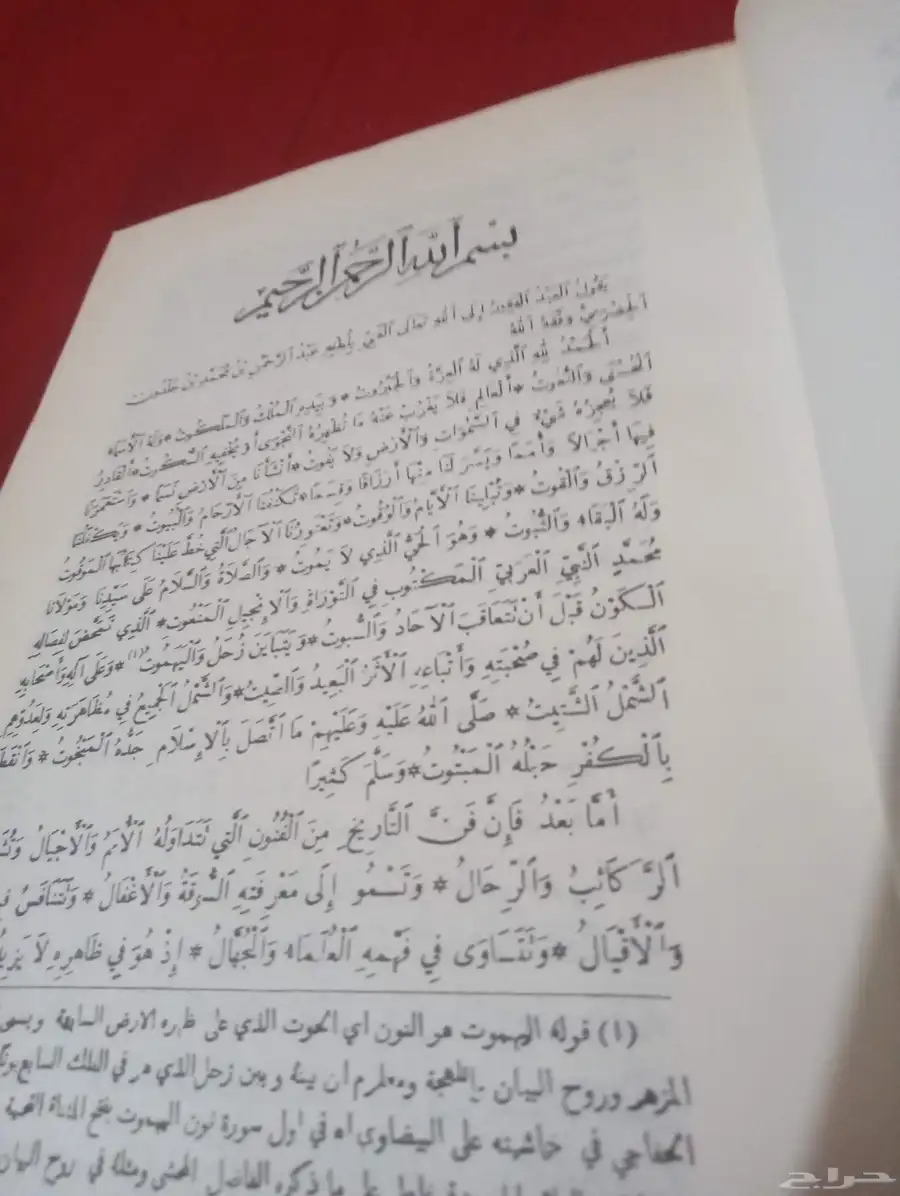 بِسْمِ ٱللَّهِ ٱلرَّحْمٰنِ ٱلرَّحِيمِ
يَقُولُ ٱلْعَبْدُ ٱلْفَقِيرُ إِلَى ٱللهِ تَعَالَى ٱلْغَنِيُّ بِلُطْفِهِ عَبْدُ ٱلرَّحْمٰنِ بْنُ مُحَمَّدِ بْنِ خَلْدُونَ
ٱلْحَضْرَمِيُّ وَفَّقَهُ ٱللهُ
ٱلْحَمْدُ لِلهِ ٱلَّذِي لَهُ ٱلْعِزَّةُ وَٱلْجَبَرُوتُ * وَبِيَدِهِ ٱلْمُلْكُ وَٱلْمَلَكُوتُ * وَلَهُ ٱلْأَسْمَاءُ
ٱلْحُسْنَى وَٱلنُّعُوتُ * ٱلْعَالِمِ فَلَا يَعْزُبُ عَنْهُ مَا تُظْهِرُهُ ٱلنَّجْوَى أَوْ يُخْفِيهِ ٱلسُّكُوتُ * ٱلْقَادِرِ
فَلَا يُعْجِزُهُ شَيْءٌ فِي ٱلسَّمٰوَاتِ وَٱلْأَرْضِ وَلَا يَفُوتُ * أَنْشَأَنَا مِنَ ٱلْأَرْضِ نَسَمًا * وَٱسْتَعْمَرَنَا
فِيهَا أَجْيَالًا وَأُمَمًا وَيَسَّرَ لَنَا مِنْهَا أَرْزَاقًا وَقِسَمًا * تَكْنُفُنَا ٱلْأَرْحَامُ وَٱلْبُيُوتُ * وَيَكْفُلُنَا
ٱلرِّزْقُ وَٱلْقُوتُ * وَتُبْلِينَا ٱلْأَيَّامُ وَٱلْوُقُوتُ * وَتَعْتَوِرُنَا ٱلْآجَالُ ٱلَّتِي خُطَّ عَلَيْنَا كِتَابُهَا ٱلْمَوْقُوتُ
وَلَهُ ٱلْبَقَاءُ وَٱلثُّبُوتُ * وَهُوَ ٱلْحَيُّ ٱلَّذِي لَا يَمُوتُ * وَٱلصَّلَاةُ وَٱلسَّلَامُ عَلَى سَيِّدِنَا وَمَوْلَانَا
مُحَمَّدٍ ٱلنَّبِيِّ ٱلْعَرَبِيِّ ٱلْمَكْتُوبِ فِي ٱلتَّوْرَاةِ وَٱلْإِنْجِيلِ ٱلْمَنْعُوتِ * ٱلَّذِي تَمَخَّضَ لِفِصَالِهِ
ٱلْكَوْنُ قَبْلَ أَنْ تَتَعَاقَبَ ٱلْآحَادُ وَٱلسُّبُوتُ * وَيَتَبَايَنَ زُحَلُ وَٱلْيَهْمُوتُ (١) * وَعَلَى آلِهِ وَأَصْحَابِهِ
ٱلَّذِينَ لَهُمْ فِي صُحْبَتِهِ وَأَتْبَاعِهِ ٱلْأَثَرُ ٱلْبَعِيدُ وَٱلصِّيتُ * وَٱلشَّمْلُ ٱلْجَمِيعُ فِي مُظَاهَرَتِهِ وَلِعَدُوِّهِمِ
ٱلشَّمْلُ ٱلشَّتِيتُ * صَلَّى ٱللهُ عَلَيْهِ وَعَلَيْهِمْ مَا ٱتَّصَلَ بِٱلْإِسْلَامِ جَدُّهُ ٱلْمَبْخُوتُ *
بِٱلْكُفْرِ حَبْلُهُ ٱلْمَبْتُوتُ * وَسَلَّمَ كَثِيرًا
أَمَّا بَعْدُ فَإِنَّ فَنَّ ٱلتَّارِيخِ مِنَ ٱلْفُنُونِ ٱلَّتِي تَتَدَاوَلُهُ ٱلْأُمَمُ وَٱلْأَجْيَالُ
ٱلرَّكَائِبُ وَٱلرِّحَالُ * وَتَسْمُو إِلَى مَعْرِفَتِهِ ٱلسُّوقَةُ وَٱلْأَغْفَالُ * وَتَتَنَافَسُ
وَٱلْأَقْيَالُ * وَتَتَسَاوَى فِي فَهْمِهِ ٱلْعُلَمَاءُ وَٱلْجُهَّالُ * إِذْ هُوَ فِي ظَاهِرِهِ لَا
(١) قوله اليهموت هو النون اي الحوت الذي على ظهره الارض السابعة
المزهر وروح البيان ومعلوم ان بينه وبين زحل الذي هو في الفلك السابع
الخفاجي في حاشيته على البيضاوي اه في اول سورة نون اليهموت بفتح المثناة التحتية
على ما ذكره الفاضل المحشي ومثله في روح البيان
حراج